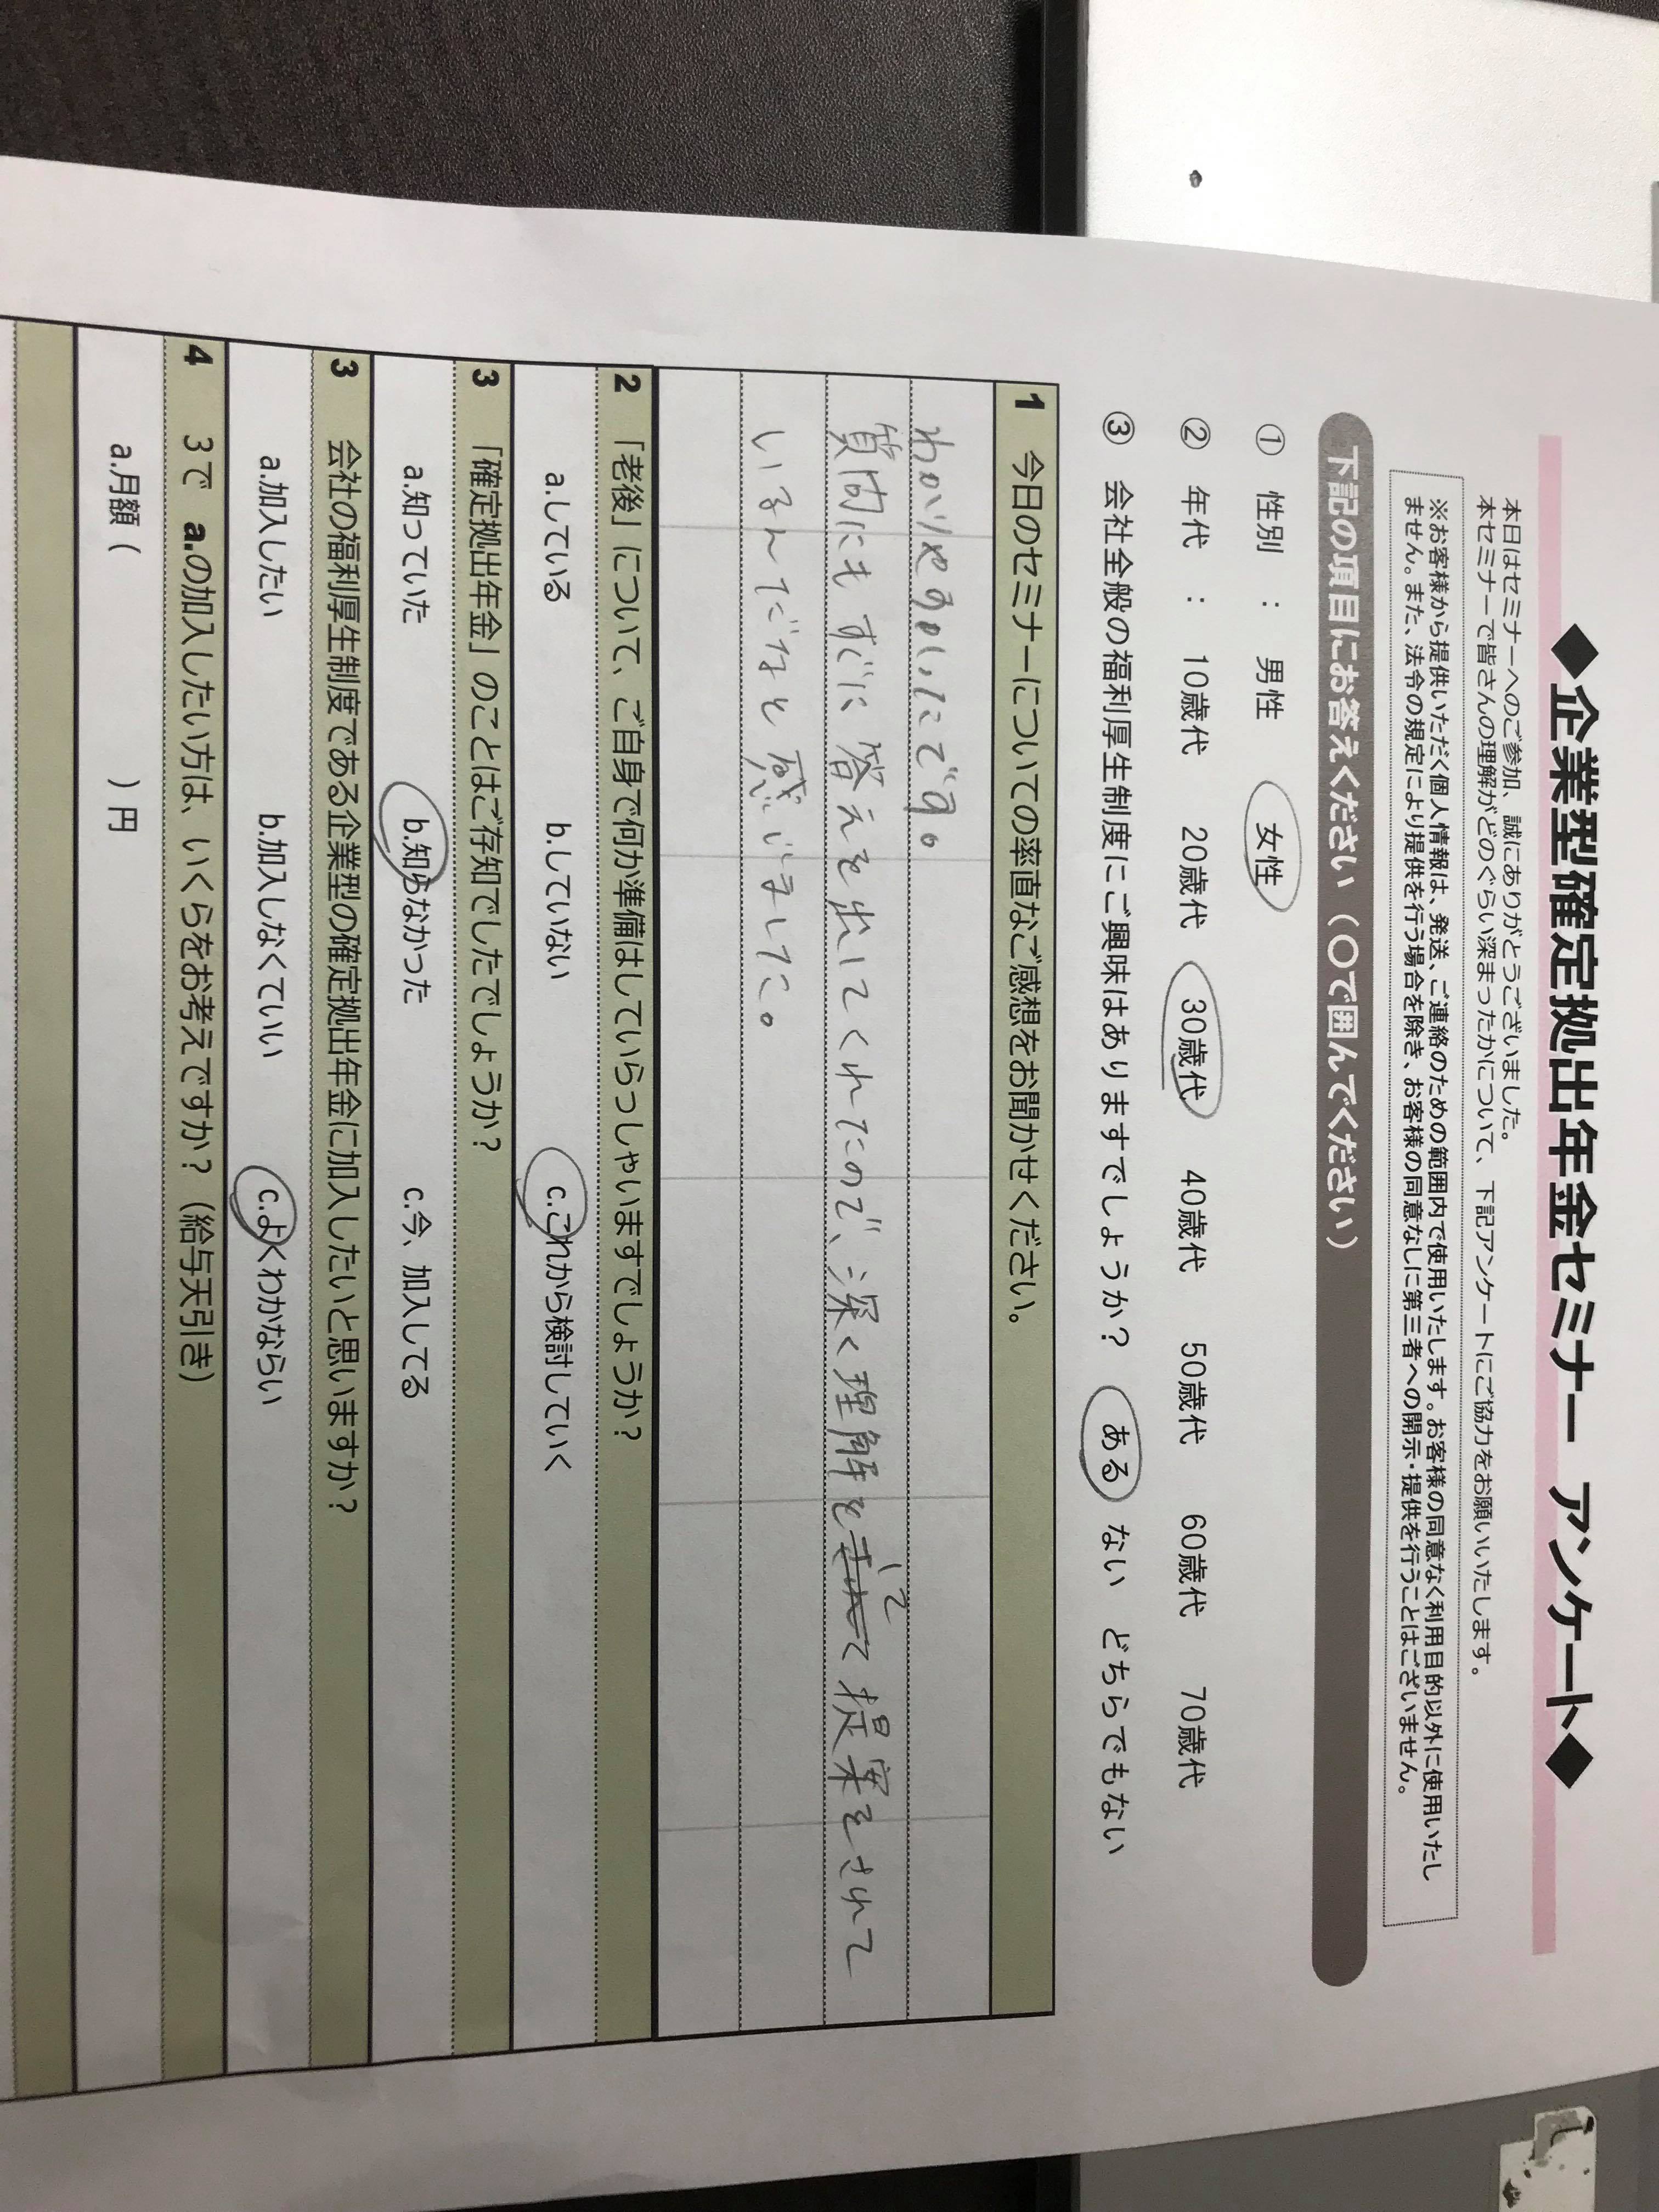 ◆企業型確定拠出年金セミナー アンケート◆
本日はセミナーへのご参加、誠にありがとうございました。
本セミナーで皆さんの理解がどのぐらい深まったかについて、下記アンケートにご協力をお願いいたします。
※お客様から提供いただく個人情報は、発送、ご連絡のための範囲内で使用いたします。お客様の同意なく利用目的以外に使用いたし
ません。また、法令の規定により提供を行う場合を除き、お客様の同意なしに第三者への開示・提供を行うことはございません。
下記の項目にお答えください（〇で囲んでください）
① 性別 : 男性 女性
② 年代 : 10歳代 20歳代 30歳代 40歳代 50歳代 60歳代 70歳代
③ 会社全般の福利厚生制度にご興味はありますでしょうか? ある ない どちらでもない
1 今日のセミナーについての率直なご感想をお聞かせください。
わかりやすかったです。
質問にもすぐに答えを出してくれたので、深く理解を して 提案をされて
いるんだなと感じました。
2 「老後」について、ご自身で何か準備はしていらっしゃいますでしょうか?
a.している b.していない c.これから検討していく
3 「確定拠出年金」のことはご存知でしたでしょうか?
a.知っていた b.知らなかった c.今、加入してる
3 会社の福利厚生制度である企業型の確定拠出年金に加入したいと思いますか?
a.加入したい b.加入しなくていい c.よくわかならい
4 3で a.の加入したい方は、いくらをお考えですか?（給与天引き）
a.月額 ( ) 円